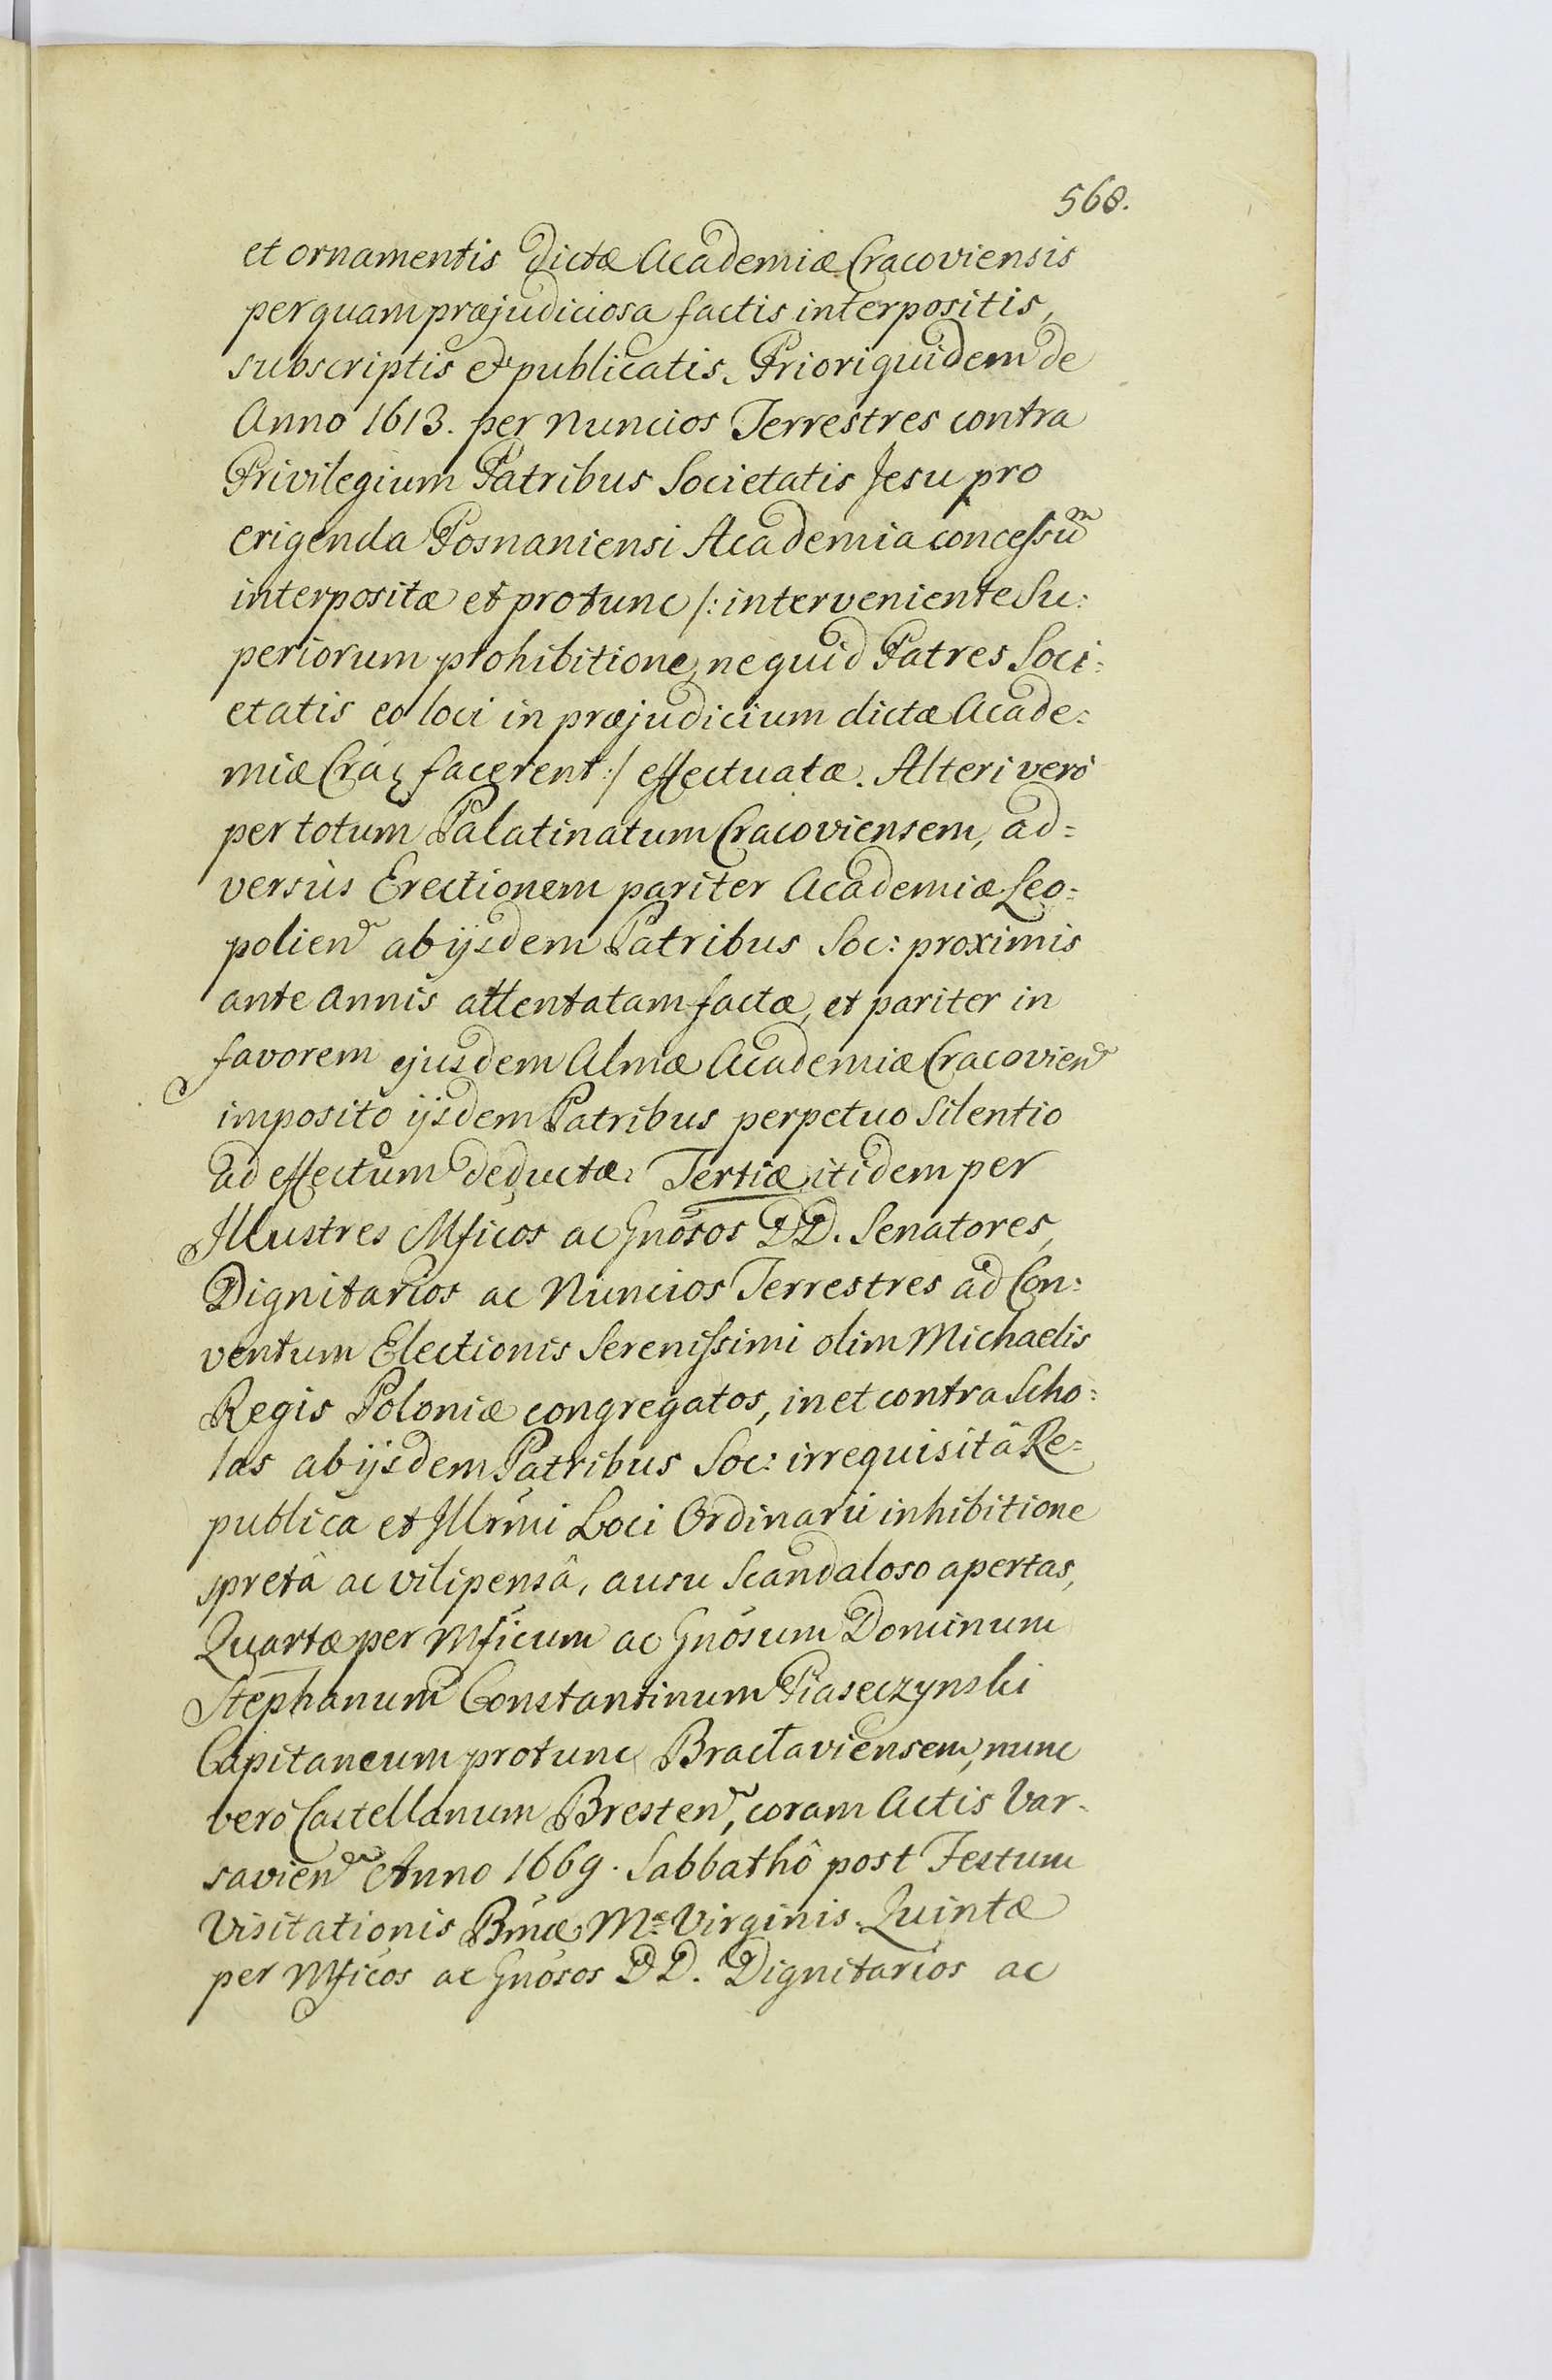 568.
et ornamentis dictæ Academiæ Cracoviensis
perquam præjudiciosa factis interpositis,
subscriptis et publicatis. Priori quidem de
Anno 1613. per Nuncios Terrestres contra
Privilegium Patribus Societatis Jesu pro
erigenda Posnaniensi Academia concessũ
interpositæ et protunc /: interveniente Su:
periorum prohibitione, ne quid Patres Soci:
etatis eo loci in præjudicium dictæ Acade:
miæ Crac facerent :/ effectuatæ. Alteri verò
per totum Palatinatum Cracoviensem, ad=
versùs Erectionem pariter Academiæ Leo=
polien ab ijsdem Patribus Soc: proximis
ante annis attentatam factæ, et pariter in
favorem ejusdem Almæ Academiæ Cracovien
imposito ijsdem Patribus perpetuo silentio
ad effectum deductæ. Tertiæ itidem per
Illustres Mficos ac Gnosos DD. Senatores,
Dignitarios ac Nuncios Terrestres ad Con:
ventum Electionis Serenissimi olim Michaelis
Regis Poloniæ congregatos, in et contra Scho:
las ab ijsdem Patribus Soc: irrequisitâ Re=
publica et Illrmi Loci Ordinarii inhibitione
spretâ ac vilipensâ, ausu scandaloso apertas,
Quartæ per Mficum ac Gnosum Dominum
Stephanum Constantinum Piaseczynski
Capitaneum protunc Bractaviensem, nunc
verò Castellanum Bresten, coram Actis Var-
savien Anno 1669. Sabbathô post Festum
Visitationis Bmæ Mæ Virginis. Quintæ
per Mficos ac Gnosos DD. Dignitarios ac